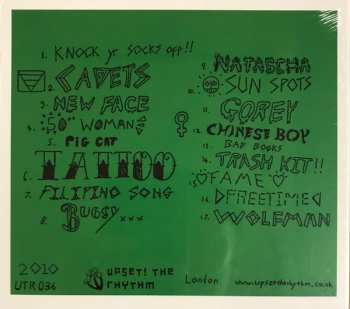 1. KNOCK yr SOCKS off!!
2. CADETS
3. NEW FACE
4. "50" WOMAN
5. PIG CAT
6. TATTOO
7. FILIPINO SONG
8. BUGSY xxx
9. NATASCHA
10. SUN SPOTS
11. GOREY
12. CHINESE BOY
13. BAD BOOKS
14. TRASH KIT!!
15. FAME
16. FREETIME
17. WOLFMAN
2010
UTR 036
UPSET! THE RHYTHM
London
www.upsettherhythm.co.uk